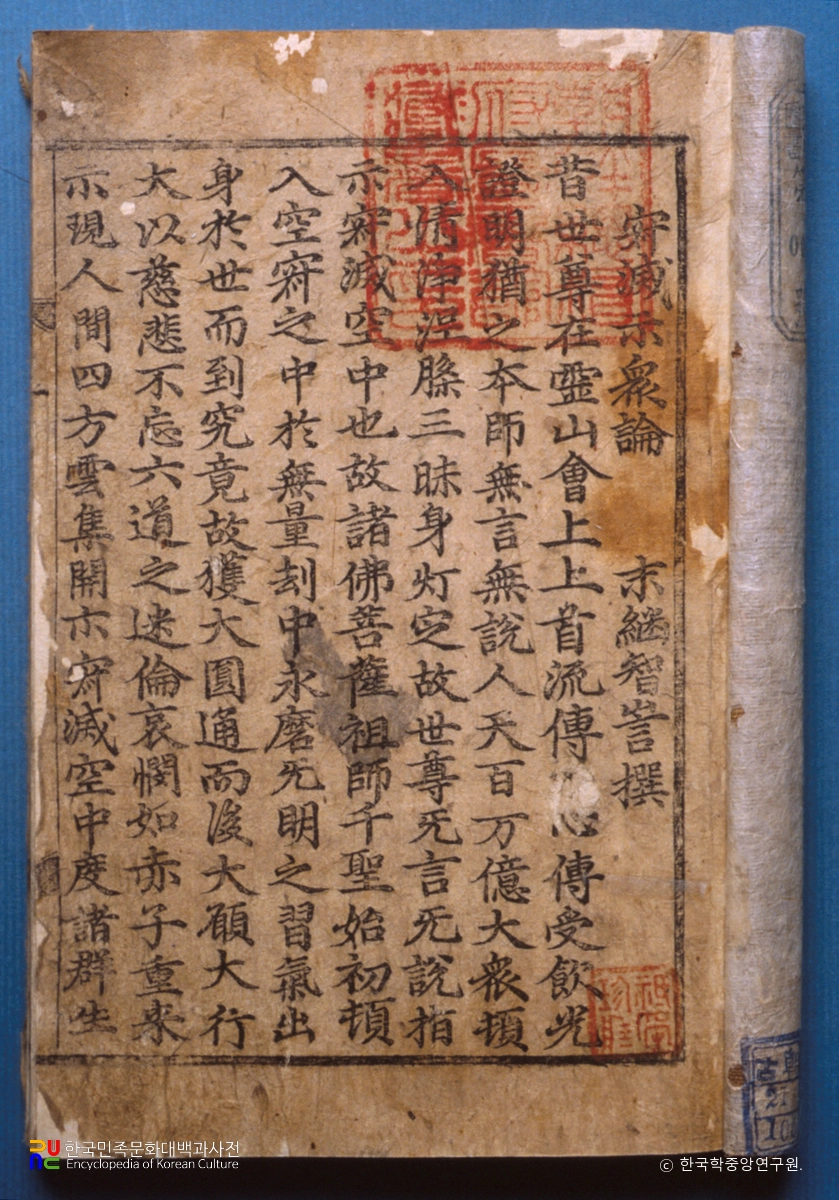 寂滅示衆論 末継智訔撰
昔世尊在霊山會上上首流傳 心傳受飮光
證明猶之本師無言無說人天百万億大衆頓
入淸淨涅槃三昧身灯定故世尊旡言旡說指
示寂滅空中也故諸佛菩薩祖師千聖始初頓
入空寂之中於無量刼中永磨旡明之習氣出
身於世而到究竟故獲大圓通而後大願大行
大以慈悲不忘六道之迷倫哀憫如赤子重来
示現人間四方雲集開示寂滅空中度諸群生
한국민족문화대백과사전
Encyclopedia of Korean Culture
ⓒ 한국학중앙연구원.